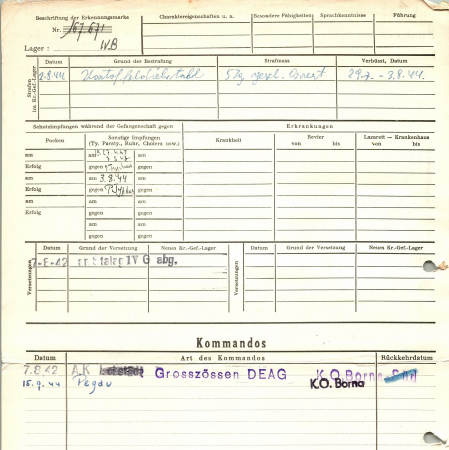 Beschriftung der Erkennungsmarke
Nr. 167 671
Lager : IVB
Charaktereigenschaften u. a.
Besondere Fähigkeiten
Sprachkenntnisse
Führung
Strafen im Kr.-Gef.-Lager
Datum
Grund der Bestrafung
Strafmass
Verbüsst, Datum
2.8.44 Kartoffeldiebstahl 5 Tg. Arrest 29.7. - 3.8.44.
Schutzimpfungen während der Gefangenschaft gegen
Erkrankungen
Pocken
Sonstige Impfungen
(Ty. Paraty., Ruhr, Cholera usw.)
Krankheit
Revier
von bis
Lazarett — Krankenhaus
von bis
am am am
Erfolg gegen Typhus gegen
am am 3.8.44 am
Erfolg gegen Typhus gegen
am am am
Erfolg gegen gegen
am am
gegen gegen
Versetzungen
Datum
Grund der Versetzung
Neues Kr.-Gef.-Lager
Versetzungen
Datum
Grund der Versetzung
Neues Kr.-Gef.-Lager
7-8-42 Stalag IV G abg.
Kommandos
Datum
Art des Kommandos
Rückkehrdatum
7.8.42 A.K Grosszössen DEAG K.O. Borna-Süd
15.9.44 Pegau K.O. Borna